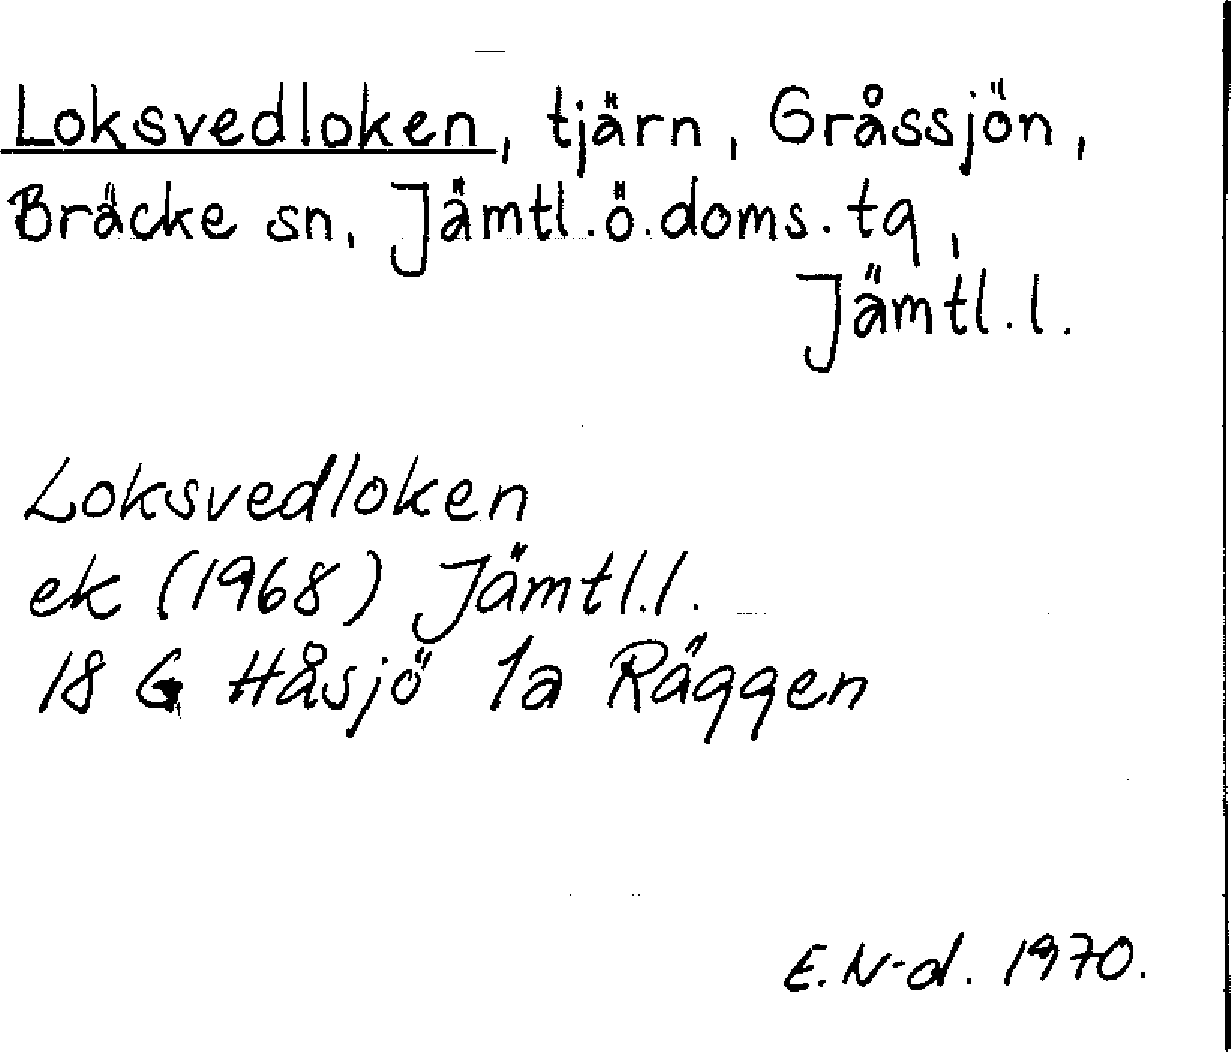 Loksvedloken, tjärn, Gråssjön,
Bräcke sn, Jämtl.ö.doms.tg,
Jämtl.l.
Loksvedloken
ek (1968) Jämtl.l.
18 G Håsjö 1a Räggen
E.N-d. 1970.